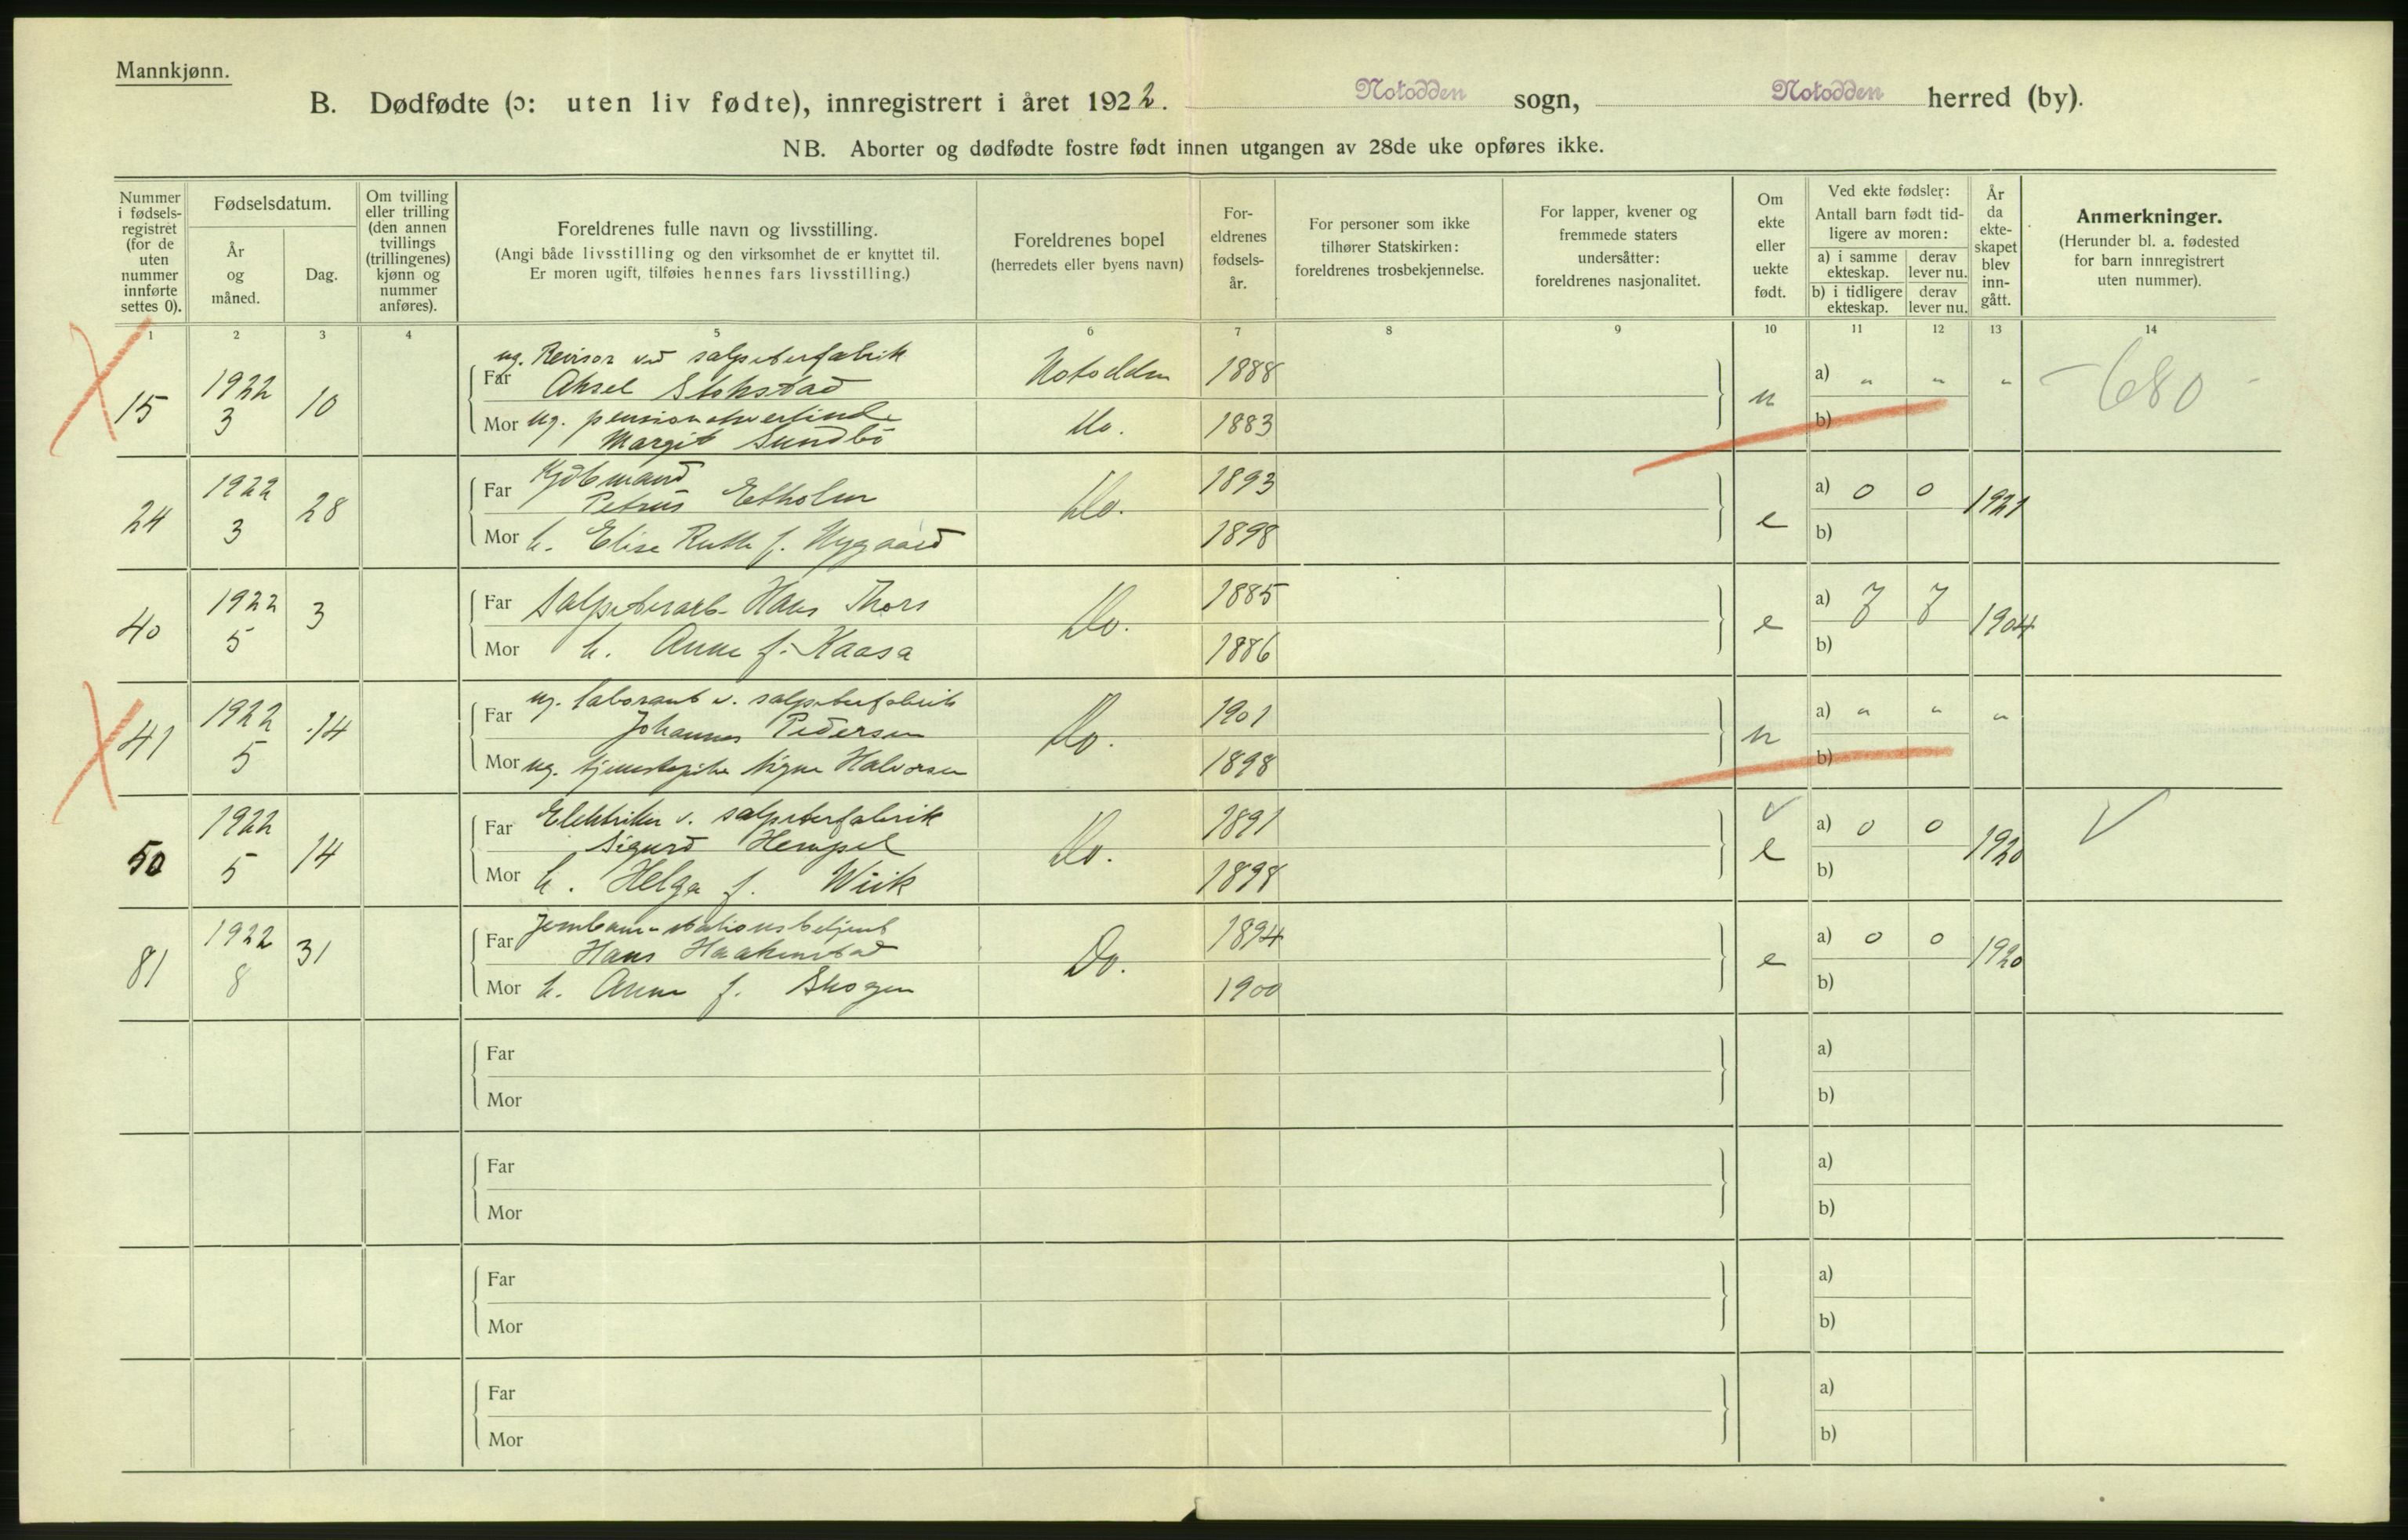 Mannkjønn.
B. Dødfødte (ɔ: uten liv fødte), innregistrert i året 1922. Notodden sogn, Notodden herred (by).
NB. Aborter og dødfødte fostre født innen utgangen av 28de uke opføres ikke.
Nummer i fødsels-registret (for de uten nummer innførte settes 0).
Fødselsdatum.
År og måned.
Dag.
Om tvilling eller trilling (den annen tvillings (trillingenes) kjønn og nummer anføres).
Foreldrenes fulle navn og livsstilling.
(Angi både livsstilling og den virksomhet de er knyttet til.
Er moren ugift, tilføies hennes fars livsstilling.)
Foreldrenes bopel
(herredets eller byens navn)
For-eldrenes fødsels-år.
For personer som ikke tilhører Statskirken: foreldrenes trosbekjennelse.
For lapper, kvener og fremmede staters undersåtter: foreldrenes nasjonalitet.
Om ekte eller uekte født.
Ved ekte fødsler:
Antall barn født tid-ligere av moren:
a) i samme ekteskap.
derav lever nu.
b) i tidligere ekteskap.
derav lever nu.
År da ekte-skapet blev inn-gått.
Anmerkninger.
(Herunder bl. a. fødested for barn innregistrert uten nummer).
1 2 3 4 5 6 7 8 9 10 11 12 13 14
ug. Revisor ved salpeterfabrik
15 1922 3 10 Far Aksel Stokstad Notodden 1888 u a) " " " 680
Mor ug. pensionatvertinde Margit Sundbö Do. 1883 b)
Kjöbmand
24 1922 3 28 Far Petrus Etholm Do. 1893 e a) 0 0 1921
Mor h. Elise Ruth f. Nygaard 1898 b)
40 1922 5 3 Far Salpeterarb. Hans Thors Do. 1885 e a) 7 7 1904
Mor h. Anne f. Kaasa 1886 b)
ug. laborant v. salpeterfabrik
41 1922 5 14 Far Johannes Pedersen Do. 1901 u a) " " "
Mor ug. tjenestepike Signe Halvorsen 1898 b)
Elektriker v. salpeterfabrik
50 1922 5 14 Far Sigurd Hempel Do. 1891 e a) 0 0 1920
Mor h. Helga f. Wiik 1898 b)
Jernban-stationsbetjent
81 1922 8 31 Far Hans Haakenstad Do. 1894 e a) 0 0 1920
Mor h. Anne f. Skogen 1900 b)
Far a)
Mor b)
Far a)
Mor b)
Far a)
Mor b)
Far a)
Mor b)